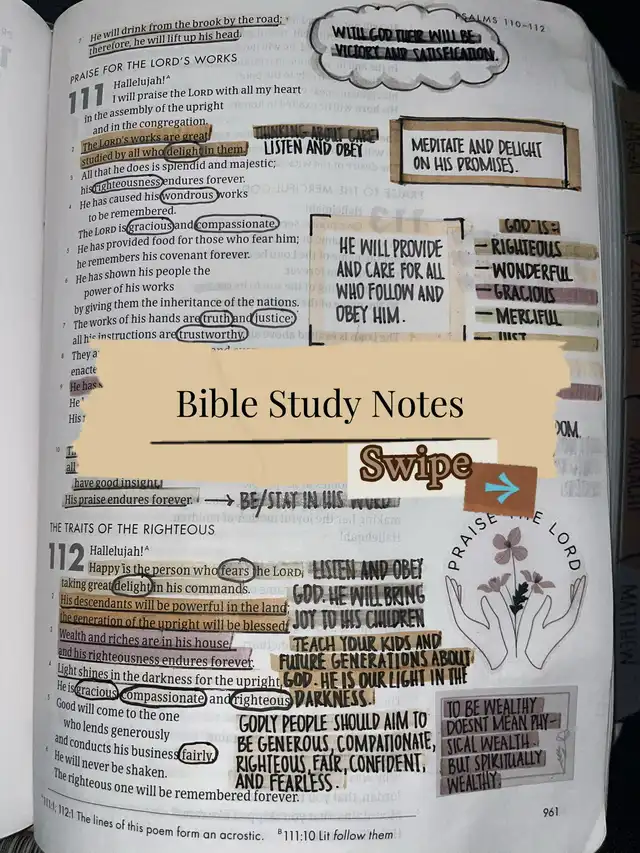 PSALMS 110–112
7 He will drink from the brook by the road;
therefore, he will lift up his head.
WITH GOD THEIR WILL BE
VICTORY AND SATISFICATION.
PRAISE FOR THE LORD'S WORKS
111 Hallelujah!A
I will praise the LORD with all my heart
in the assembly of the upright
and in the congregation.
2 The LORD's works are great,
studied by all who delight in them.
THINKING ABOUT CARE
LISTEN AND OBEY
MEDITATE AND DELIGHT
ON HIS PROMISES.
3 All that he does is splendid and majestic;
his righteousness endures forever.
4 He has caused his wondrous works
to be remembered.
The LORD is gracious and compassionate.
5 He has provided food for those who fear him;
he remembers his covenant forever.
6 He has shown his people the
power of his works
by giving them the inheritance of the nations.
7 The works of his hands are truth and justice;
all his instructions are trustworthy.
HE WILL PROVIDE
AND CARE FOR ALL
WHO FOLLOW AND
OBEY HIM.
GOD IS:
– RIGHTEOUS
– WONDERFUL
– GRACIOUS
– MERCIFUL
– JUST
8 They a
enacte
9 He has s
He
His
Bible Study Notes
Swipe
10
all
have good insight.
His praise endures forever. → BE/STAY IN HIS WORD
THE TRAITS OF THE RIGHTEOUS
112 Hallelujah!A
Happy is the person who fears the LORD,
taking great delight in his commands.
2 His descendants will be powerful in the land;
the generation of the upright will be blessed.
3 Wealth and riches are in his house,
and his righteousness endures forever.
4 Light shines in the darkness for the upright.
He is gracious, compassionate, and righteous.
5 Good will come to the one
who lends generously
and conducts his business fairly.
6 He will never be shaken.
The righteous one will be remembered forever.
LISTEN AND OBEY
GOD. HE WILL BRING
JOY TO HIS CHILDREN
TEACH YOUR KIDS AND
FUTURE GENERATIONS ABOUT
GOD. HE IS OUR LIGHT IN THE
DARKNESS.
GODLY PEOPLE SHOULD AIM TO
BE GENEROUS, COMPATIONATE,
RIGHTEOUS, FAIR, CONFIDENT,
AND FEARLESS.
PRAISE THE LORD
TO BE WEALTHY
DOESNT MEAN PHY-
SICAL WEALTH.
BUT SPIRITUALLY
WEALTHY.
MATTHEW
A 111:1; 112:1 The lines of this poem form an acrostic. B 111:10 Lit follow them
961